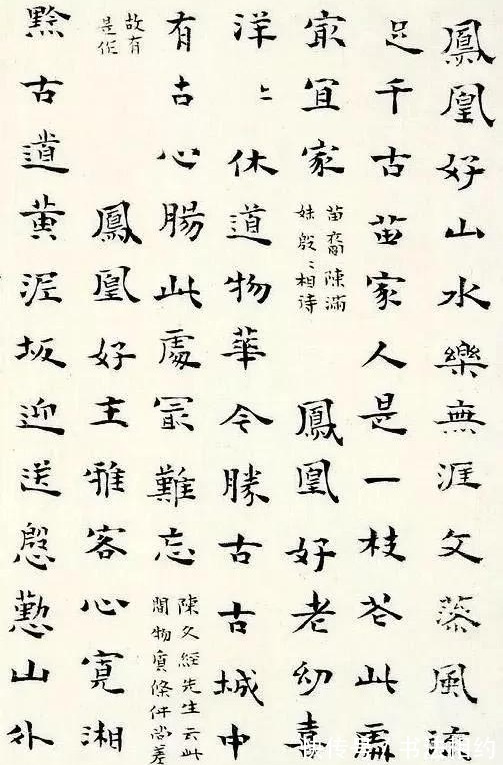 鳳凰好山水樂無涯文藻風流
足千古苗家人是一枝花此處
冣宜家
苗裔陳滿
妹殷〻相待
鳳凰好老幼喜
洋〻休道物華今勝古古城中
有古心腸此處冣難忘
陳久經先生云此
間物質條件尚差
故有
是作
鳳凰好主雅客心寬湘
黔古道黃泥坂迎送慇懃山外